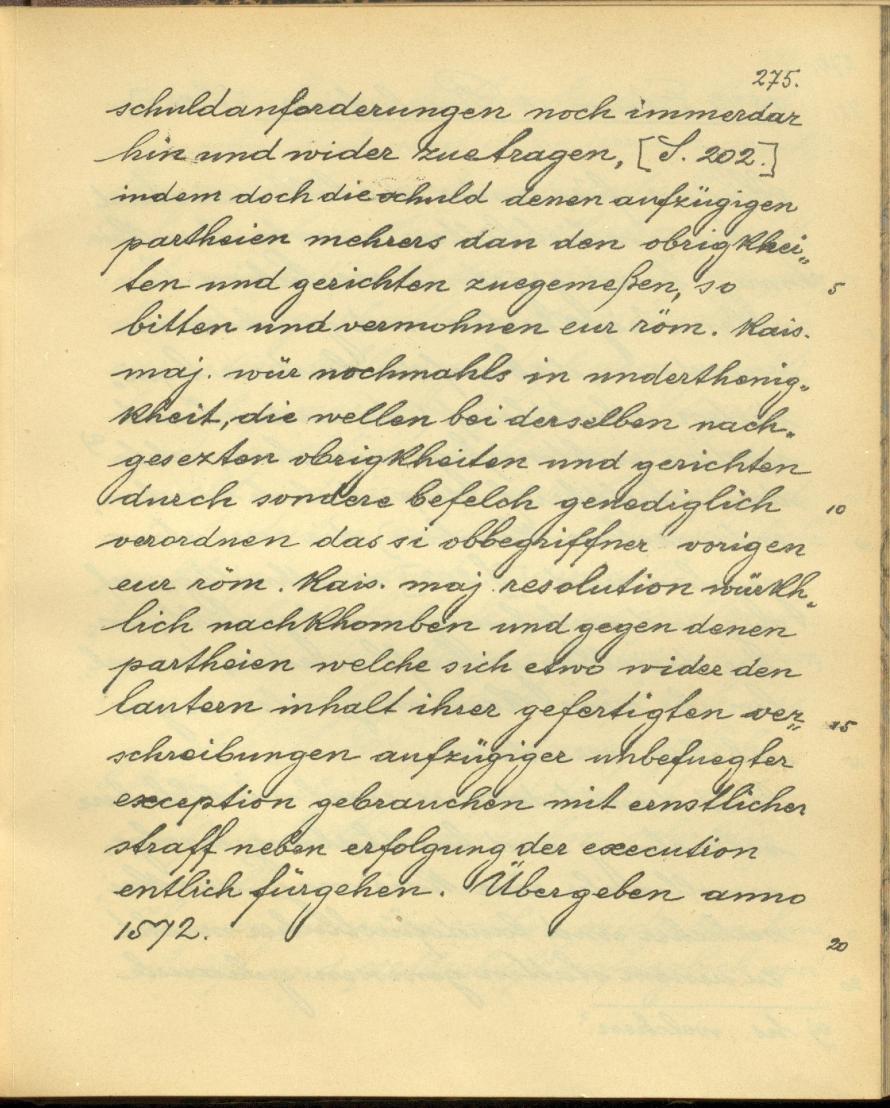 275.
schuldanforderungen noch immerdar
hin und wider zuetragen, [S. 202.]
indem doch die schuld denen aufzügigen
partheien mehrers dan den obrigkhei„
ten und gerichten zuegemeßen, so 5
bitten und vermohnen eur röm. Kais.
maj. wür nochmahls in underthenig„
kheit, die wellen bei derselben nach„
gesezten obrigkheiten und gerichten
durch sondere befelch genediglich 10
verordnen das si obbegriffner vorigen
eur röm. Kais. maj. resolution würkh„
lich nachkhomben und gegen denen
partheien welche sich etwo wider den
lautern inhalt ihrer gefertigten ver„ 15
schreibungen aufzügiger unbefuegter
exception gebrauchen mit ernstlicher
straff neben erfolgung der execution
entlich fürgehen. Übergeben anno
1572. 20